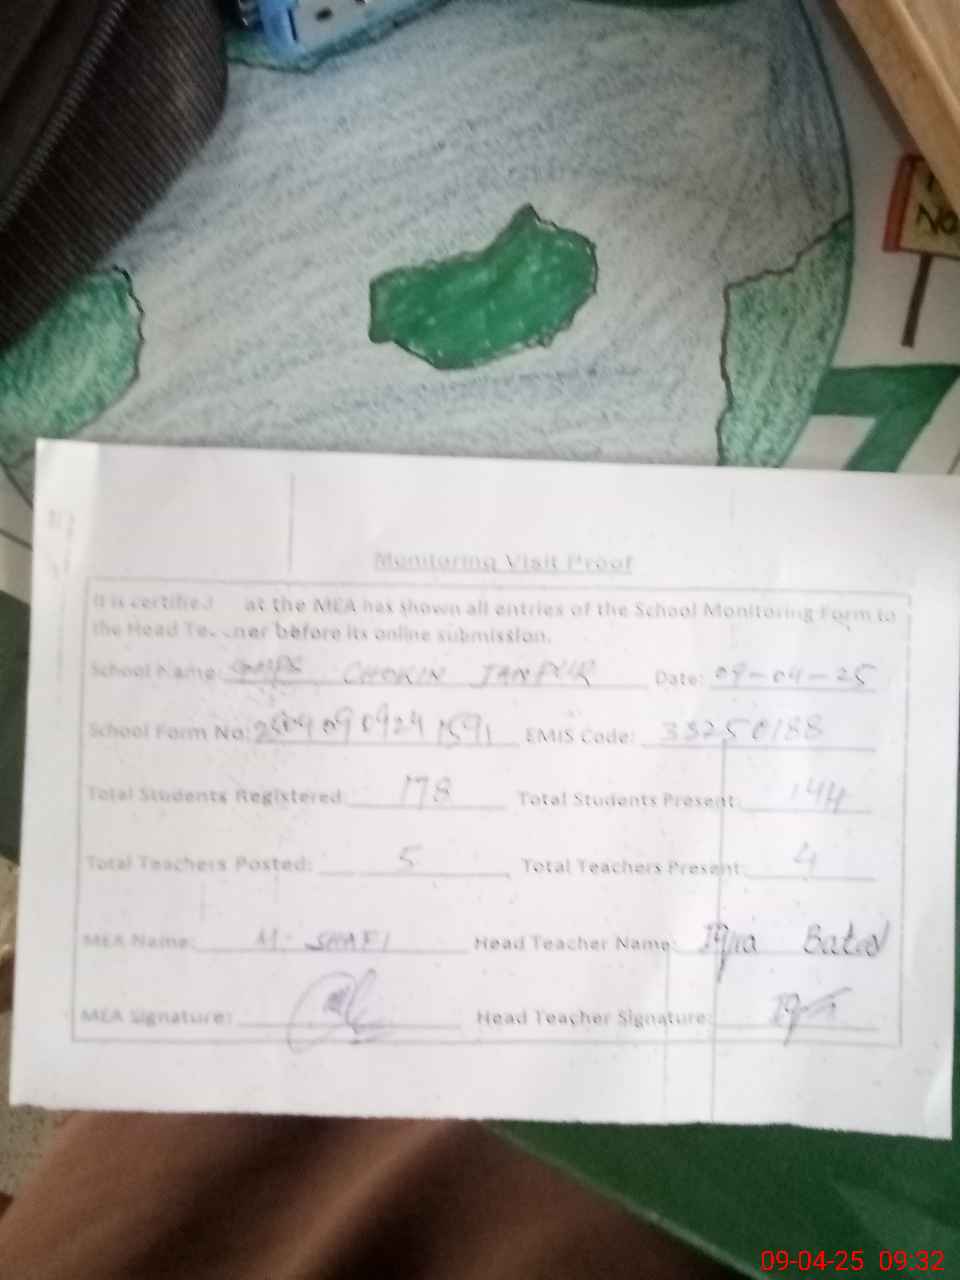 No
Monitoring Visit Proof
It is certified at the MEA has shown all entries of the School Monitoring Form to
the Head Te er before its online submission.
School Name: CHOKIN JANPUR Date: 09-04-25
School Form No: EMIS Code: 33250188
Total Students Registered: 178 Total Students Present: 144
Total Teachers Posted: 5 Total Teachers Present: 4
MEA Name: M. SHAFI Head Teacher Name: Iqra Batool
MEA Signature: Head Teacher Signature:
09-04-25 09:32